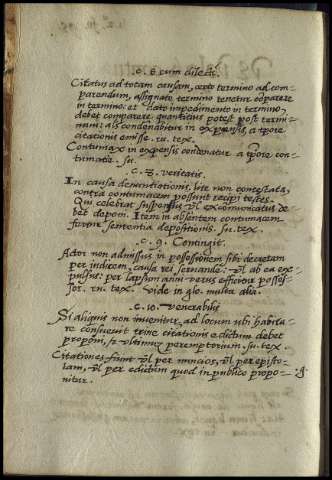 c. 6 cum dilecti
Citatus ad totam causam, certo termino ad com-
parendum, assignato termino tenetur comparere
in termino: et dato impedimento in termino,
debet comparere quantocius potest post termi-
num: als condenabitur in expensis, a tpore
citationis emisse. ru. tex.
Contumax in expensis condenatur a tpore con-
tumatie. su.
c. 8. veritatis.
In causa denuntiationis, lite non contestata,
contra contumacem possunt recipi testes.
Qui celebrat suspensus vl excomunicatus de-
bet depon. Item in absentem contumacem
fertur sententia depositionis. su. tex.
c. 9. Contingit.
Actor non admissus in possessionem sibi decretam
per iudicem, causa rei servande: vl ab ea ex-
pulsus: per lapsum anni verus efficitur posses-
sor. ru. tex. Vide in glo. multa alia.
c. 10. venerabilis
Si aliquis non invenitur, ad locum ubi habita-
re consuevit trine citationis edictum debet
proponi, et ultimum peremptorium. su. tex.
Citationes fiunt vl per nuncios, vl per episto-
lam, vl per edictum quod in publico propo-
nitur.